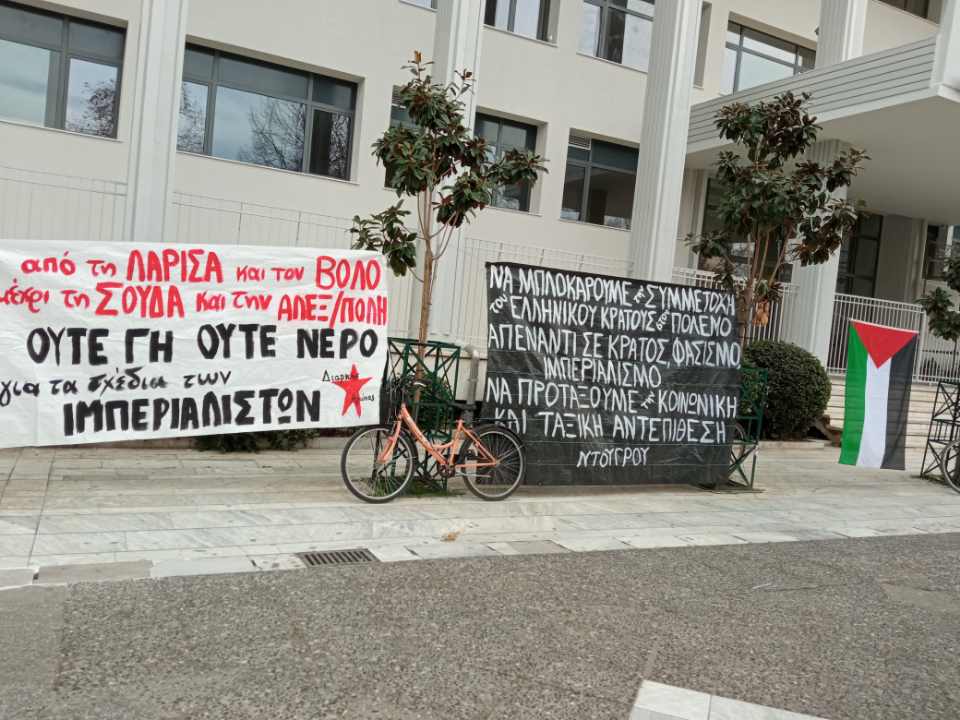 από τη ΛΑΡΙΣΑ και τον ΒΟΛΟ
μέχρι τη ΣΟΥΔΑ και την ΑΛΕΞ/ΠΟΛΗ
ΟΥΤΕ ΓΗ ΟΥΤΕ ΝΕΡΟ
για τα σχέδια των
ΙΜΠΕΡΙΑΛΙΣΤΩΝ
ΝΑ ΜΠΛΟΚΑΡΟΥΜΕ τη ΣΥΜΜΕΤΟΧΗ
του ΕΛΛΗΝΙΚΟΥ ΚΡΑΤΟΥΣ στον ΠΟΛΕΜΟ
ΑΠΕΝΑΝΤΙ ΣΕ ΚΡΑΤΟΣ, ΦΑΣΙΣΜΟ
ΙΜΠΕΡΙΑΛΙΣΜΟ
ΝΑ ΠΡΟΤΑΞΟΥΜΕ τη ΚΟΙΝΩΝΙΚΗ
ΚΑΙ ΤΑΞΙΚΗ ΑΝΤΕΠΙΘΕΣΗ
ΝΤΟΥΓΡΟΥ